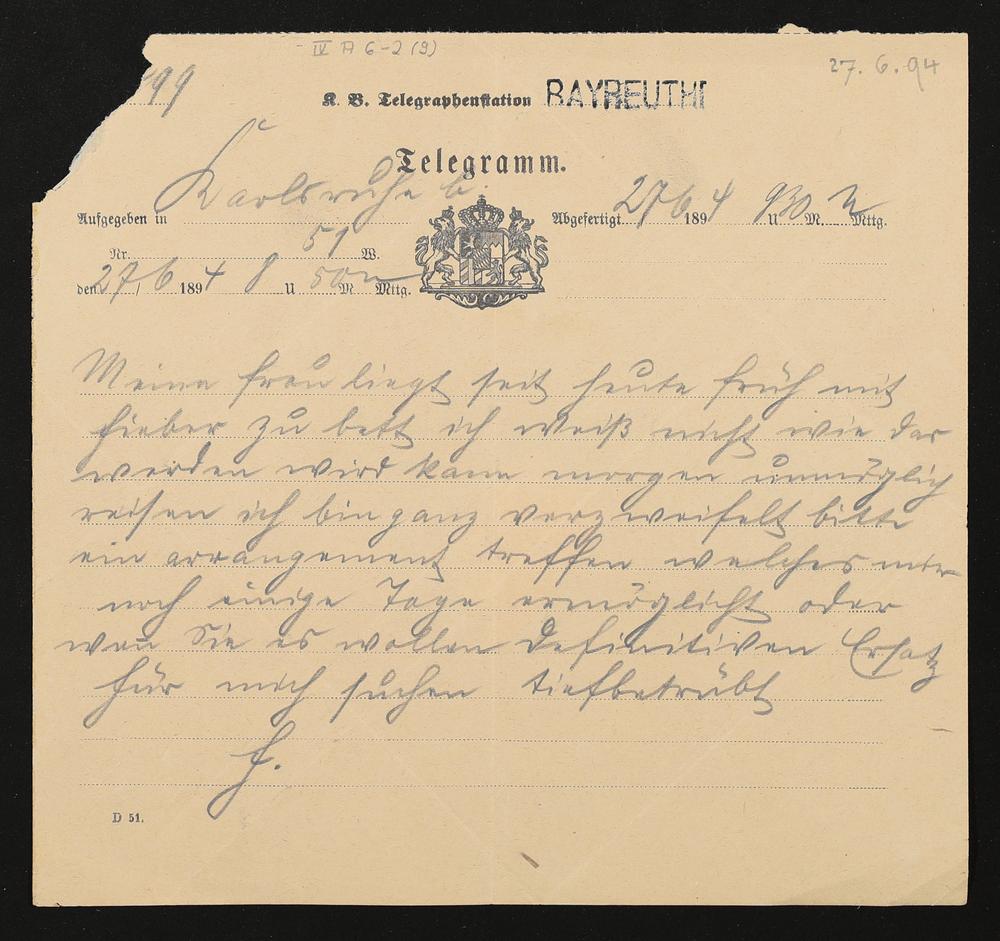 IV A 6-2 (9)
27. 6. 94
499
K. B. Telegraphenstation BAYREUTH
Telegramm.
Aufgegeben in Karlsruhe b.
Abgefertigt 27/6 1894 9 U 30 M. N Mttg.
Nr. 51 W.
den 27/6 1894 8 U 50 M n Mttg.
Meine frau liegt seit heute früh mit
fieber zu bett ich weiß nicht wie das
werden wird kann morgen unmöglich
reisen ich bin ganz verzweifelt bitte
ein arrangement treffen welches mir
noch einige Tage ermöglicht oder
wen̄ Sie es wollen definitiven Ersatz
für mich suchen tiefbetrübt
f.
D 51.